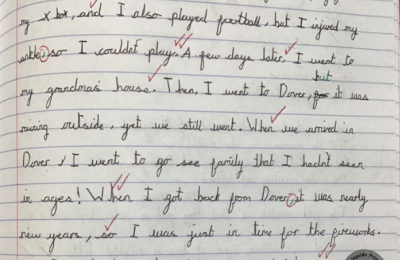 my X box, and I also played football, but I injured my
ankle, so I couldn't play. A few days later, I went to
my grandma's house. Then, I went to Dover, but it was
raining outside, yet we still went. When we arrived in
Dover, I went to go see family that I hadn't seen
in ages! When I got back from Dover, it was nearly
new years, so I was just in time for the fireworks.